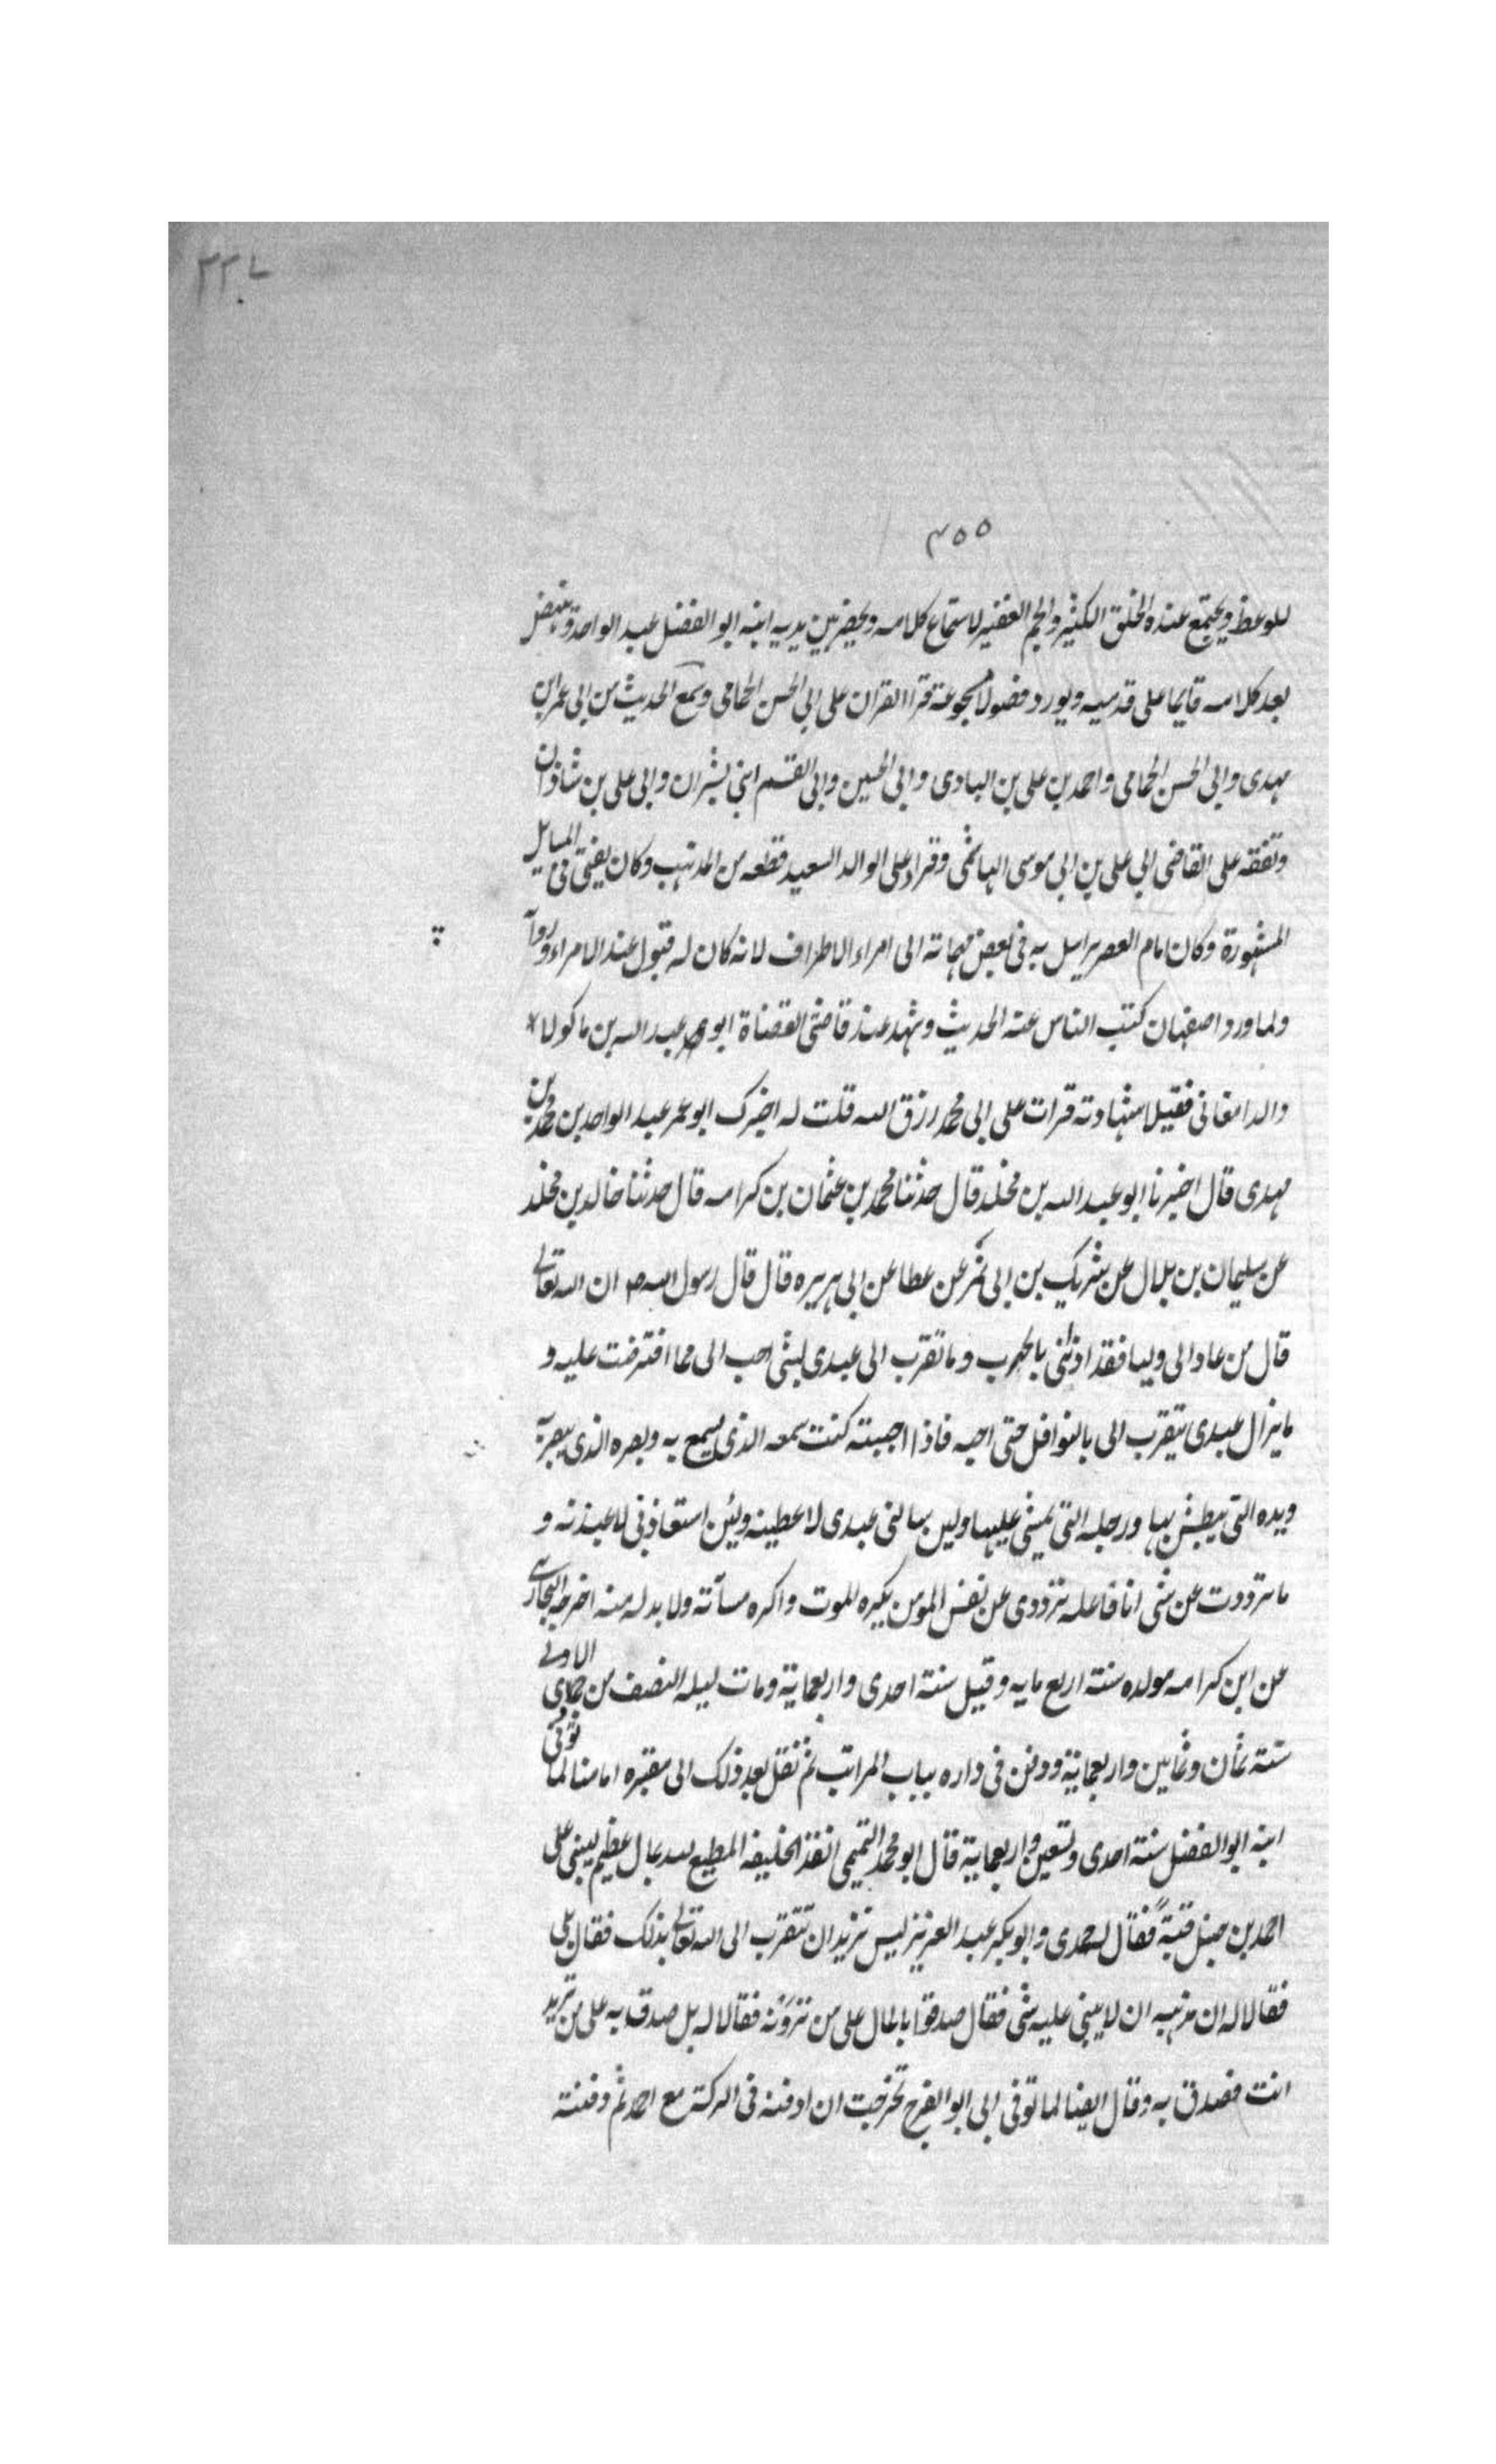 ٣٣٠٧
٤٥٥
للوعظ ويجتمع عنده الخلق الكثير والجم الغفير لاستماع كلامه ويحضر بين يديه ابنه ابو الفضل عبد الواحد وينهض
بعد كلامه قايما على قدميه ويورد فضولا مجموعة قرا القران على ابي الحسن الحمامي وسمع الحديث من ابي عمر ابن
مهدى وابي الحسن الحمامي واحمد بن على بن البادى وابي الحسين وابي القسم ابني بشران وابي على بن شاذان
وتفقه على القاضى ابي على بن ابي موسى الهاشمى وقراء على الوالد السعيد قطعه من المذهب وكان يفتى فى المسايل
المشهورة وكان امام العصر يراسل به فى بعض مهماته الى امراء الاطراف لانه كان له قبول عند الامراء
ولما ورد اصفهان كتب الناس عنه الحديث وشهد عند قاضى القضاة ابو عبد الله بن ماكولا
والدامغانى فقيلا شهادته قرات على ابى محمد رزق الله قلت له اخبرك ابو عمر عبد الواحد بن محمد بن
مهدى قال اخبرنا ابو عبد الله بن مخلد قال حدثنا محمد بن عثمان بن كرامه قال حدثنا خالد بن مخلد
عن سليمان بن بلال عن شريك بن ابى نمر عن عطا عن ابى هريره قال قال رسول الله ص ان الله تعالى
قال من عاد الى وليا فقد اذننى بالحرب وما تقرب الى عبدى بشى احب الى مما افترضت عليه و
ما يزال عبدى يتقرب الى بالنوافل حتى احبه فاذا احببته كنت سمعه الذى يسمع به وبصره الذى يبصر به
ويده التى يبطش بها ورجله التى يمشى عليها ولين سالنى عبدى لاعطينه ولئن استعاذنى لاعيذنه و
ما ترددت عن شى انا فاعله ترددى عن نفس المومن يكره الموت واكره مسآته ولا بد له منه اخرجه البخارى
عن ابن كرامه مولده سنة اربع مايه وقيل سنة احدى واربعماية ومات ليله النصف من جمادى الاولى
سنة ثمان وثمانين واربعماية ودفن فى داره بباب المراتب ثم نقل بعد ذلك الى مقبره امامنا لما توفى
ابنه ابو الفضل سنة احدى وتسعين واربعماية قال ابو محمد التميمى انفذ الخليفه المطيع لله بمال عظيم ليبنى على
احمد بن حنبل قبة فقال له جدى وابو بكر عبد العزيز ليس تريد ان تتقرب الى الله تعالى بذلك فقال بلى
فقالا له ان مذهبه ان لا يبنى عليه شى فقال صدقوا بالمال على من ترونه فقالا له بل صدق به على من تريد
انت فصدق به وقال ايضا لما توفى ابى ابو الفرج تحرجت ان ادفنه فى الدكة مع احمد ثم دفنته